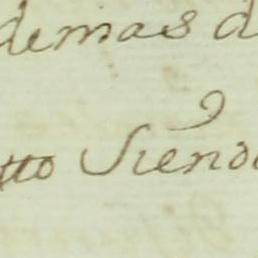 demas d
tto Siend